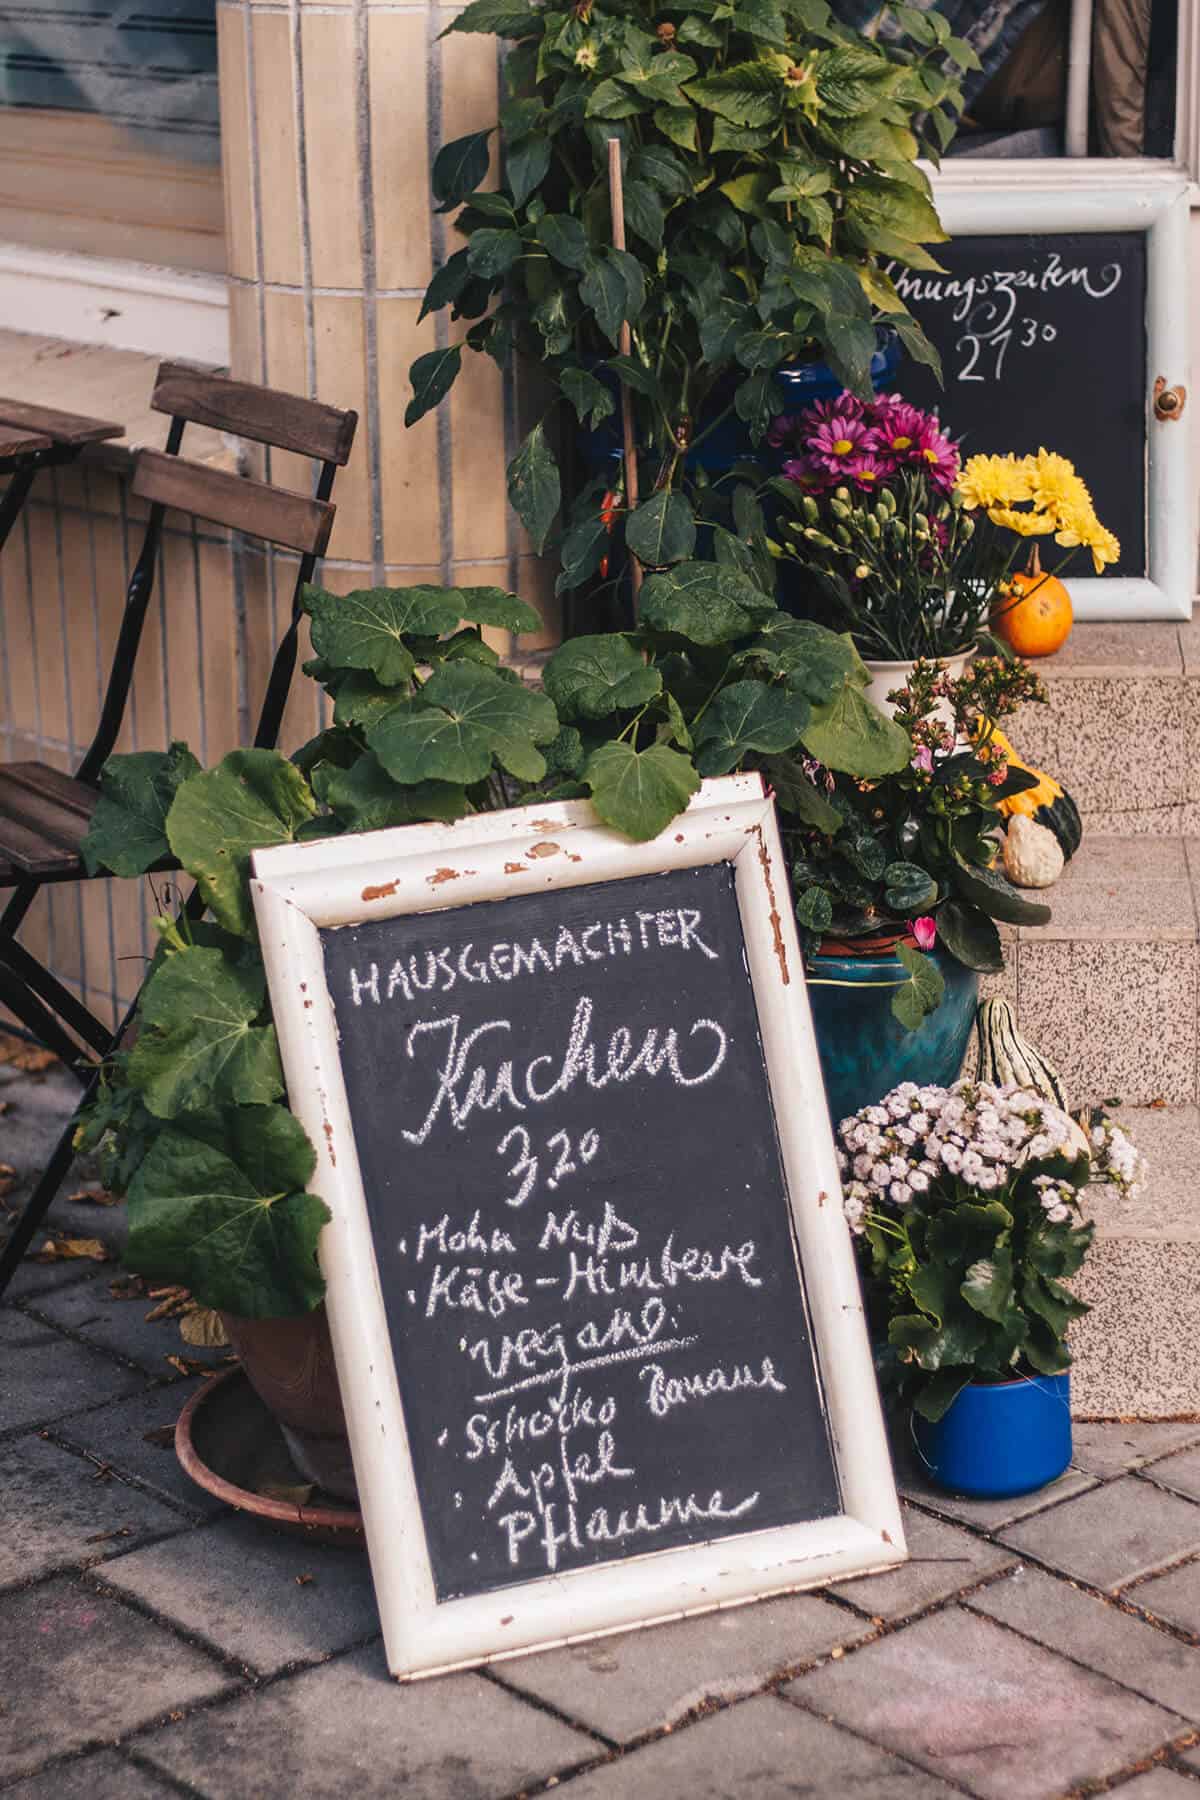 HAUSGEMACHTER
Kuchen
3.20
• Mohn Nuß
• Käse-Himbeere
• vegano:
• Schoko Banane
• Apfel
• Pflaume
hnungszeiten
21 30